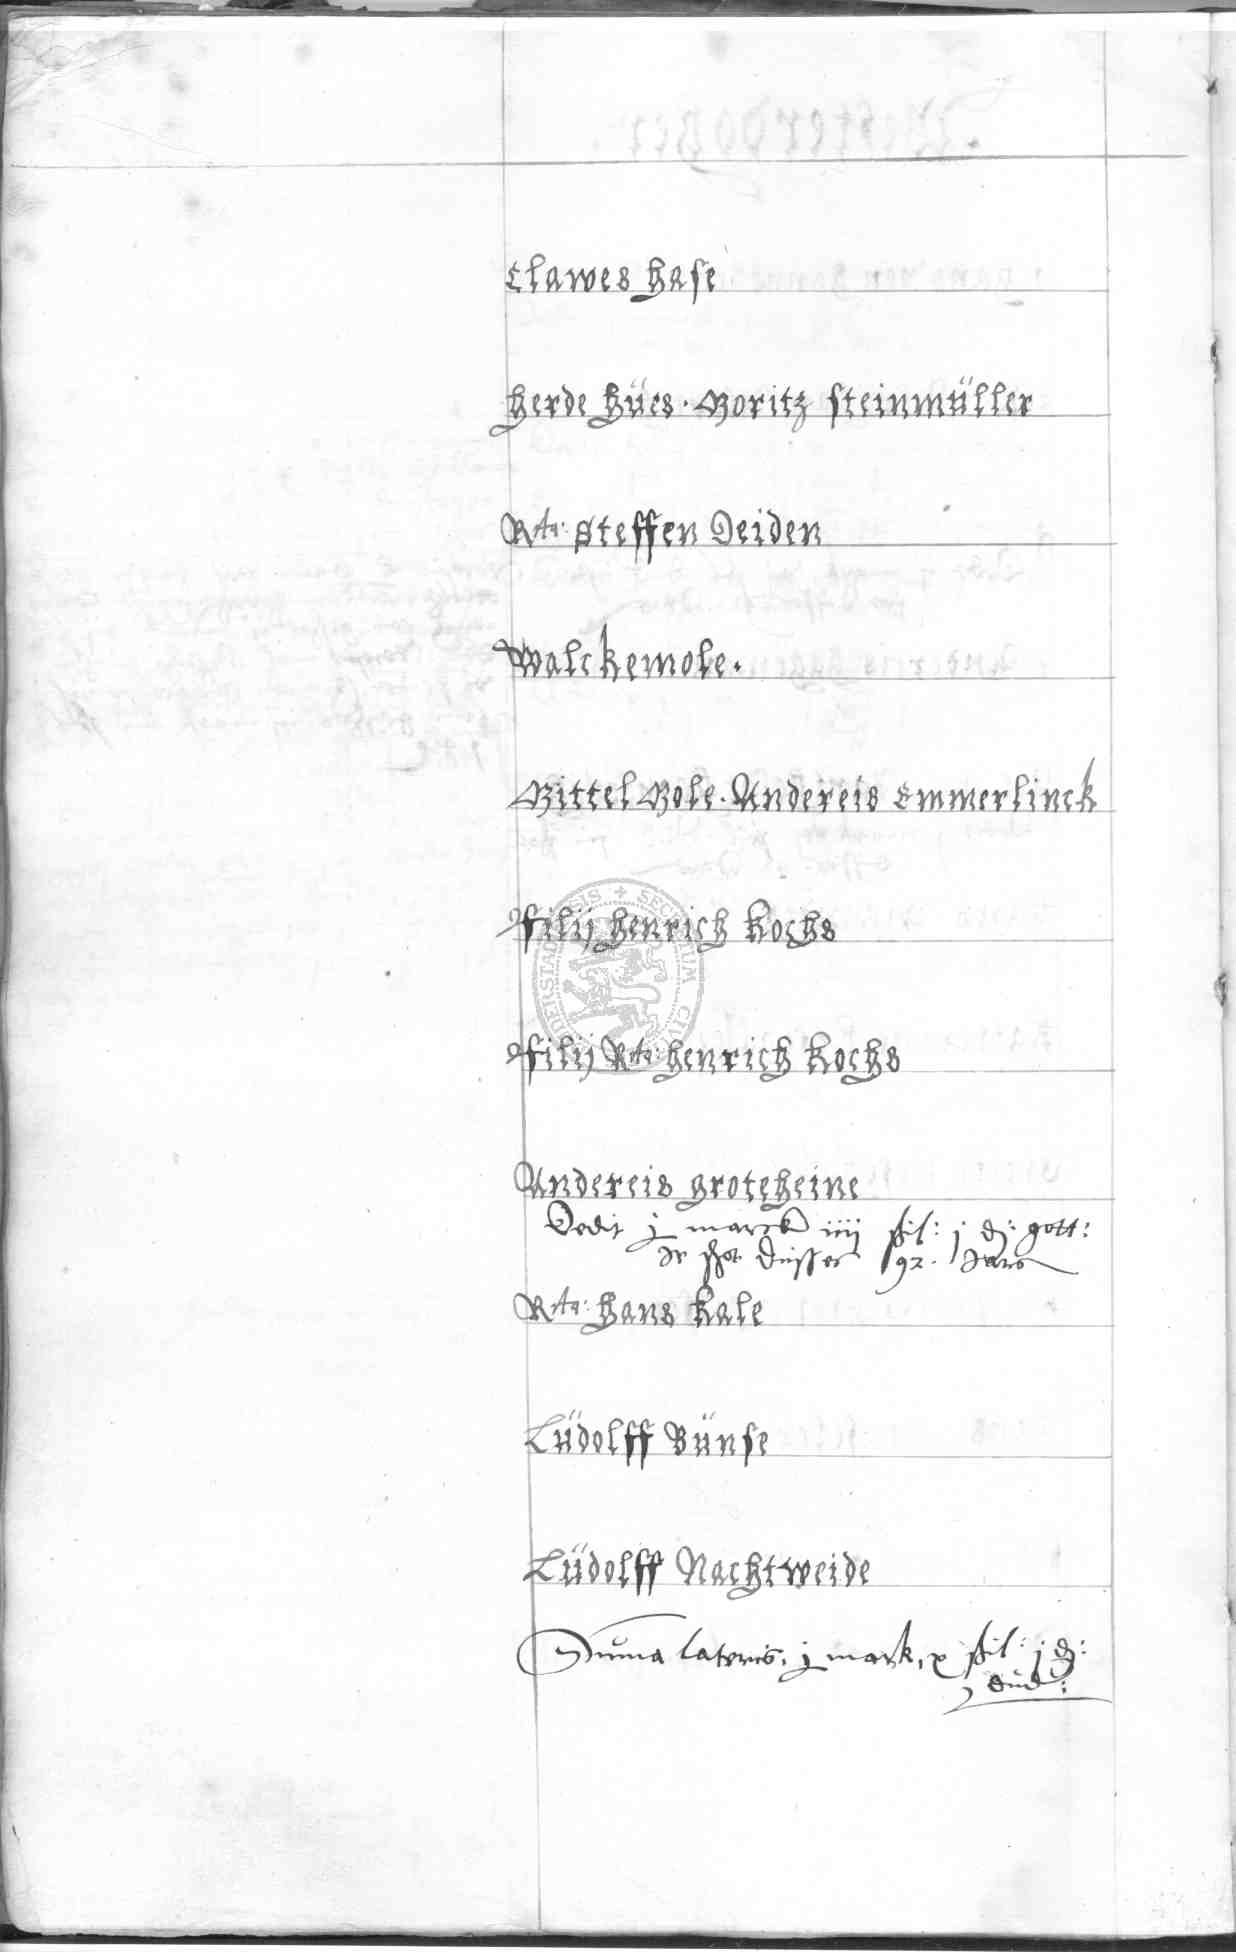 Clawes hase
herde hües. Moritz steinmüller
Rta: Steffen Deiden
Walckemole.
Mittel Mole. Andereis Emmerlinck
filij henrich Kochs
filij Rta: henrich Kochs
Andereis groteheine
Dedit j marck iiij ßil: j d: gott:
de schot düsser 92. Jars
Rta: hans Kale
Lüdolff Bünse
Lüdolff Nachtweide
Suma lateris. j mark, x ßil: j d:
dud: